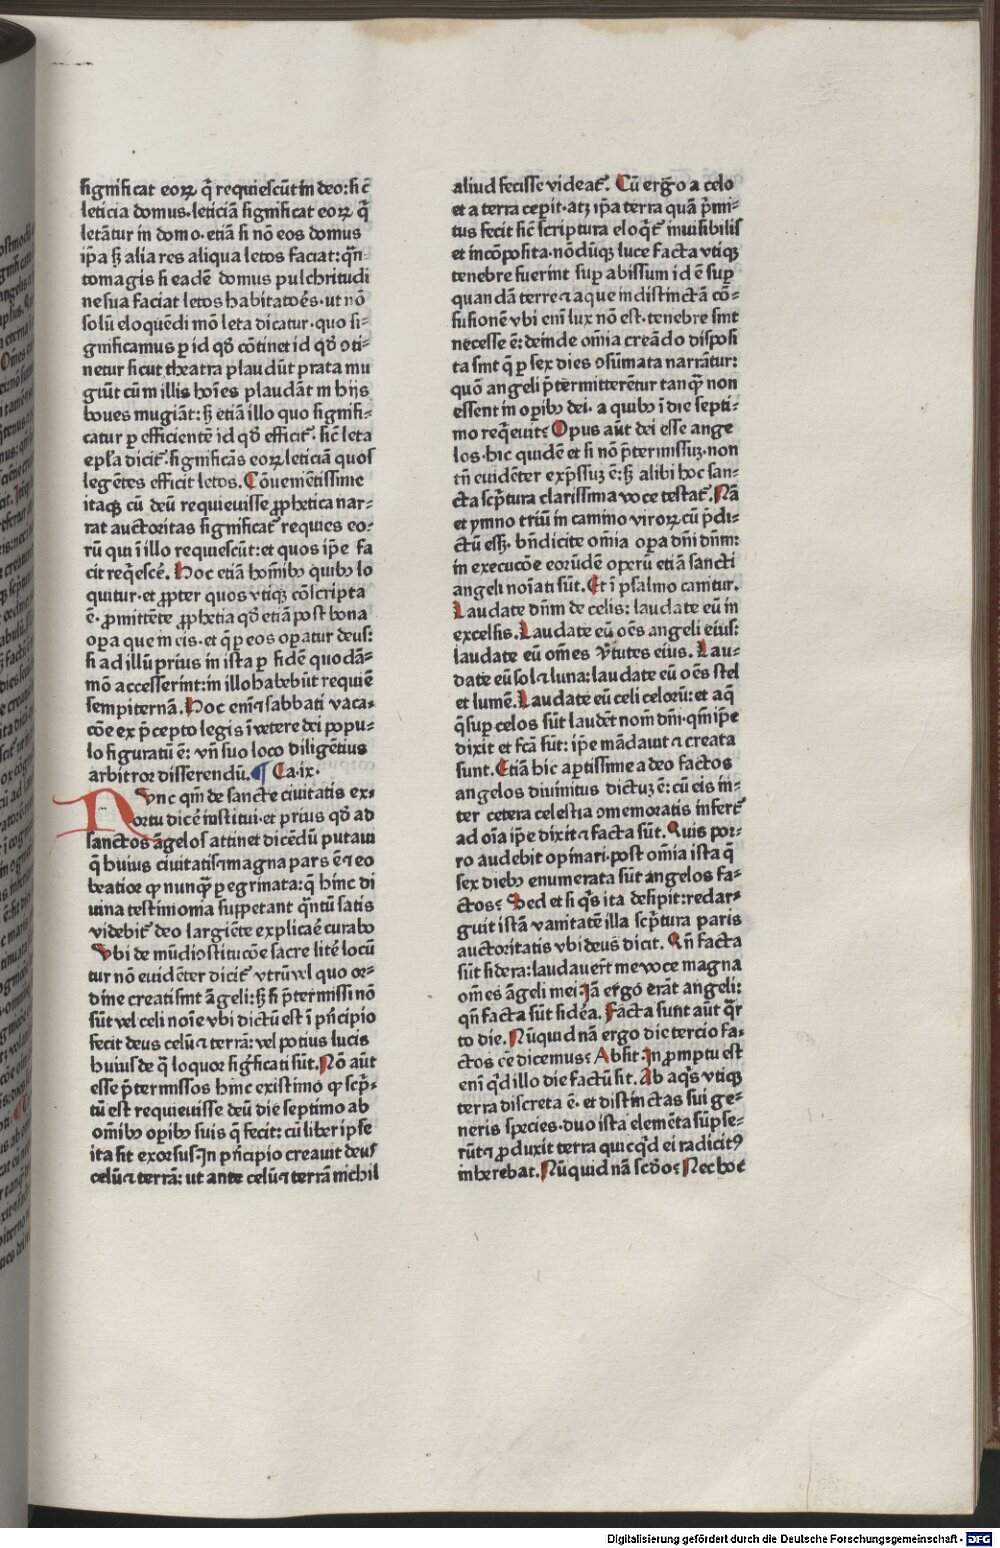 significat eoꝝ q̄ requiescūt in deo: sic̄
leticia domus. leticiā significat eoꝝ q̄
letātur in domo. etiā si nō eos domus
ip̄a sꝫ alia res aliqua letos faciat: qn̄
to magis si eadē domus pulchritudi
ne sua faciat letos habitatoēs. ut nō
solū eloquēdi mō leta dicatur. quo si⸗
gnificamus ꝑ id qd̄ cōtinet id qd̄ ꝯti⸗
netur sicut theatra plaudūt prata mu
giūt cū in illis hoīes plaudāt in hijs
boues mugiāt: sꝫ etiā illo quo signifi⸗
catur ꝑ efficientē id qd̄ efficit̄. sic̄ leta
epl̄a dicit̄. significās eoꝝ leticiā quos
legētes efficit letos. Cōuenientissime
itaqꝫ cū deū requieuisse ꝓphetica nar⸗
rat auctoritas significat̄ requies eo⸗
rū qui ī illo requiescūt: et quos ip̄e fa
cit reqescē. Hoc etiā hoīnibꝰ quibꝰ lo
quitur. et ꝓpter quos vtiqꝫ cōscripta
ē. ꝓmittēte ꝓphetia qd̄ etiā post bona
oꝑa que in eis. et q̄ ꝑ eos oꝑatur deus:
si ad illū prius in ista ꝑ fidē quodā⸗
mō accesserint: in illo habebūt requiē
sempiternā. Hoc em̄ ⁊ sabbati vaca⸗
cōe ex p̄cepto legis ī vetere dei popu⸗
lo figuratū ē: vn̄ suo loco diligētius
arbitror disserendū. ¶ Ca. ix.
Nvnc qm̄ de sancte ciuitatis ex⸗
ortu dicē institui. et prius qd̄ ad
sanctos āgelos attinet dicēdū putaui
q̄ huius ciuitatis ⁊ magna pars ē ⁊ eo
beatior ꝙ nunq̄ꝫ ꝑegrinata: q̄ hinc di
uina testimonia suppetant qn̄tū satis
videbit̄ deo largiēte explicaē curabo
Vbi de mūdi ꝯstitucōe sacre litē locū
tur nō euidēter dicit̄ vtrū vl̓ quo or⸗
dīne creati sint āgeli: sꝫ si p̄termissi nō
sūt vel celi noīe vbi dictū est ī pn̄cipio
fecit deus celū ⁊ terrā: vel potius lucis
huius de q̄ loquor sig̓ficati sūt. Nō aūt
esse p̄termissos hinc existimo ꝙ scp̄⸗
tū est requieuisse deū die septimo ab
om̄ibꝰ oꝑibꝰ suis q̄ fecit: cū liber ipse
ita sit exorsus In pn̄cipio creauit deus
celū ⁊ terrā: ut ante celū ⁊ terrā nichil
aliud fecisse videat̄. Cū ergo a celo
et a terra cepit. atqꝫ ip̄a terra quā p̄mi⸗
tus fecit sic̄ scriptura eloqt̄ inuisibilis
et incōposita. nōdūqꝫ luce facta vtiqꝫ
tenebre fuerint suꝑ abissum id ē suꝑ
quandā terre ⁊ aque indistinctā cō⸗
fusionē vbi eni lux nō est. tenebre sint
necesse ē: deinde om̄ia creādo disposi
ta sint q̄ ꝑ sex dies ꝯsūmata narrātur:
quō angeli p̄termitterētur tanq̄ non
essent in oꝑibꝰ dei. a quibꝰ ī die septi⸗
mo reqeuit? Opus aūt dei esse ange
los. hic quidē et si nō p̄termissuꝫ. non
tn̄ euidēter exp̄ssuꝫ ē: sꝫ alibi hoc san⸗
cta scp̄tura clarissima voce testat̄. Nā
et ymno triū in camino viroꝝ cū p̄di⸗
ctū essꝫ. bn̄dicite om̄ia oꝑa dn̄i dn̄m:
in execucōe eorūdē operū etiā sancti
angeli noīati sūt. Et ī psalmo canitur.
Laudate dn̄m de celis: laudate eū in
excelsis. Laudate eū oēs angeli eius:
laudate eū om̄es v̓tutes eius. Lau⸗
date eū sol ⁊ luna: laudate eū oēs stel
et lumē. Laudate eū celi celorū: et aq̄
q̄ suꝑ celos sūt laudēt nom̄ dn̄i. qm̄ ip̄e
dixit et fcā sūt: ip̄e mādauit ⁊ creata
sunt. Etiā hic aptissime a deo factos
angelos diuinitus dictuꝫ ē: cū eis in⸗
ter cetera celestia ꝯmemoratis infert̄
ad oīa ip̄e dixit ⁊ facta sūt. Quis por⸗
ro audebit opinari. post om̄ia ista q̄
sex diebꝰ enumerata sūt angelos fa⸗
ctos? Sed et si q̄s ita desipit: redar⸗
guit istā vanitatē illa scp̄tura paris
auctoritatis vbi deus dicit. Qn̄ facta
sūt sidera: laudauer̄t me voce magna
om̄es āgeli mei. Iā ergo erāt angeli:
qn̄ facta sūt sidēa. Facta sunt aūt q̄r
to die. Nūquid nā ergo die tercio fa⸗
ctos eē dicemus? Absit. In ꝓmptu est
eni q̓d illo die factū sit. Ab aq̄s vtiqꝫ
terra discreta ē. et distinctas sui ge⸗
neris species. duo ista elemēta sūpse⸗
rūt ⁊ ꝓduxit terra quicq̓d ei radicitꝰ
inherebat. Nūquid nā scd̓o? Nec hoc
Digitalisierung gefördert durch die Deutsche Forschungsgemeinschaft - DFG